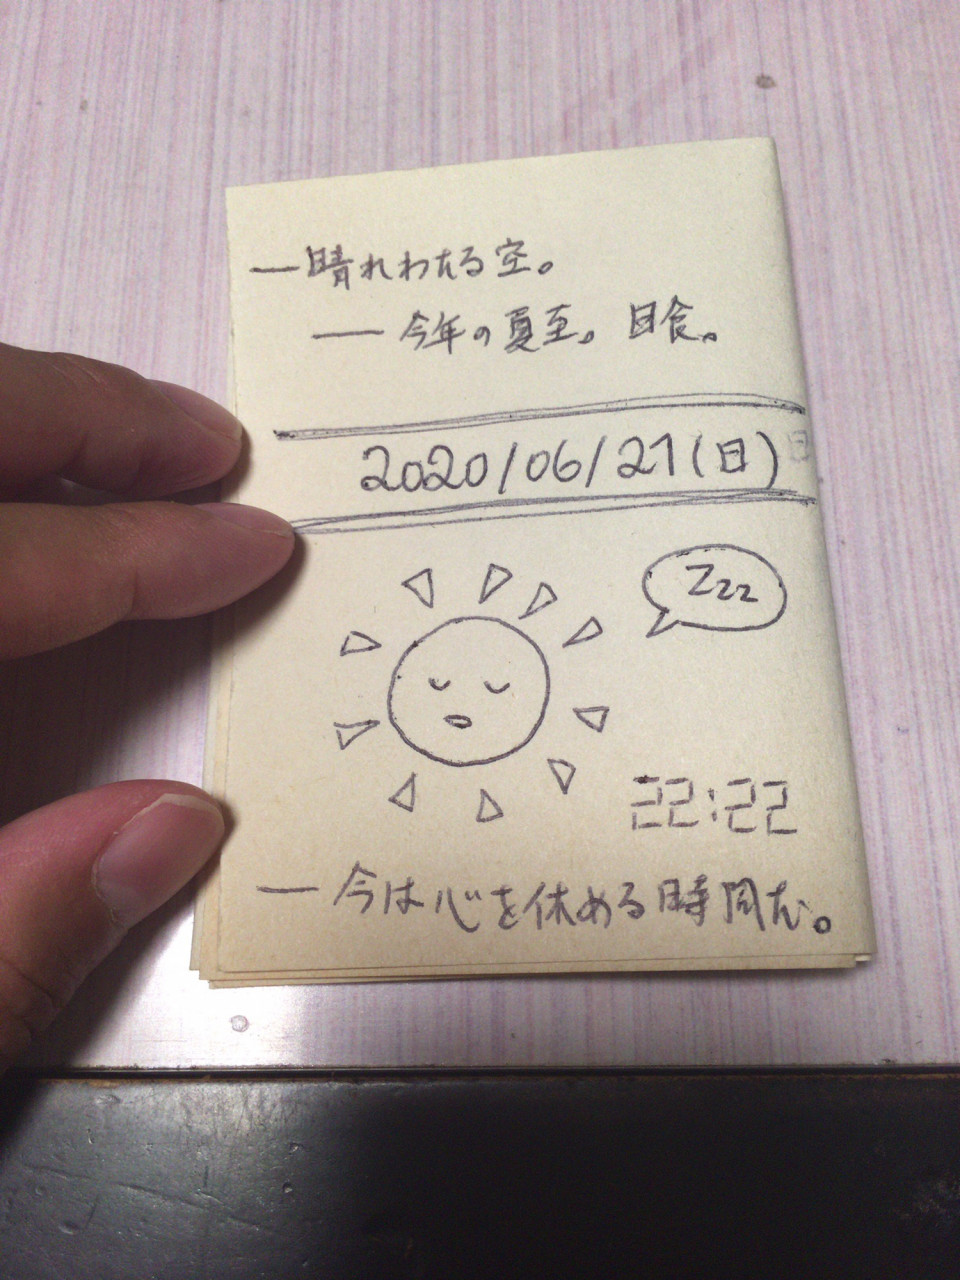 ― 晴れわたる空。
― 今年の夏至。日食。
2020/06/21(日)
Zzz
22:22
― 今は心を休める時間だ。